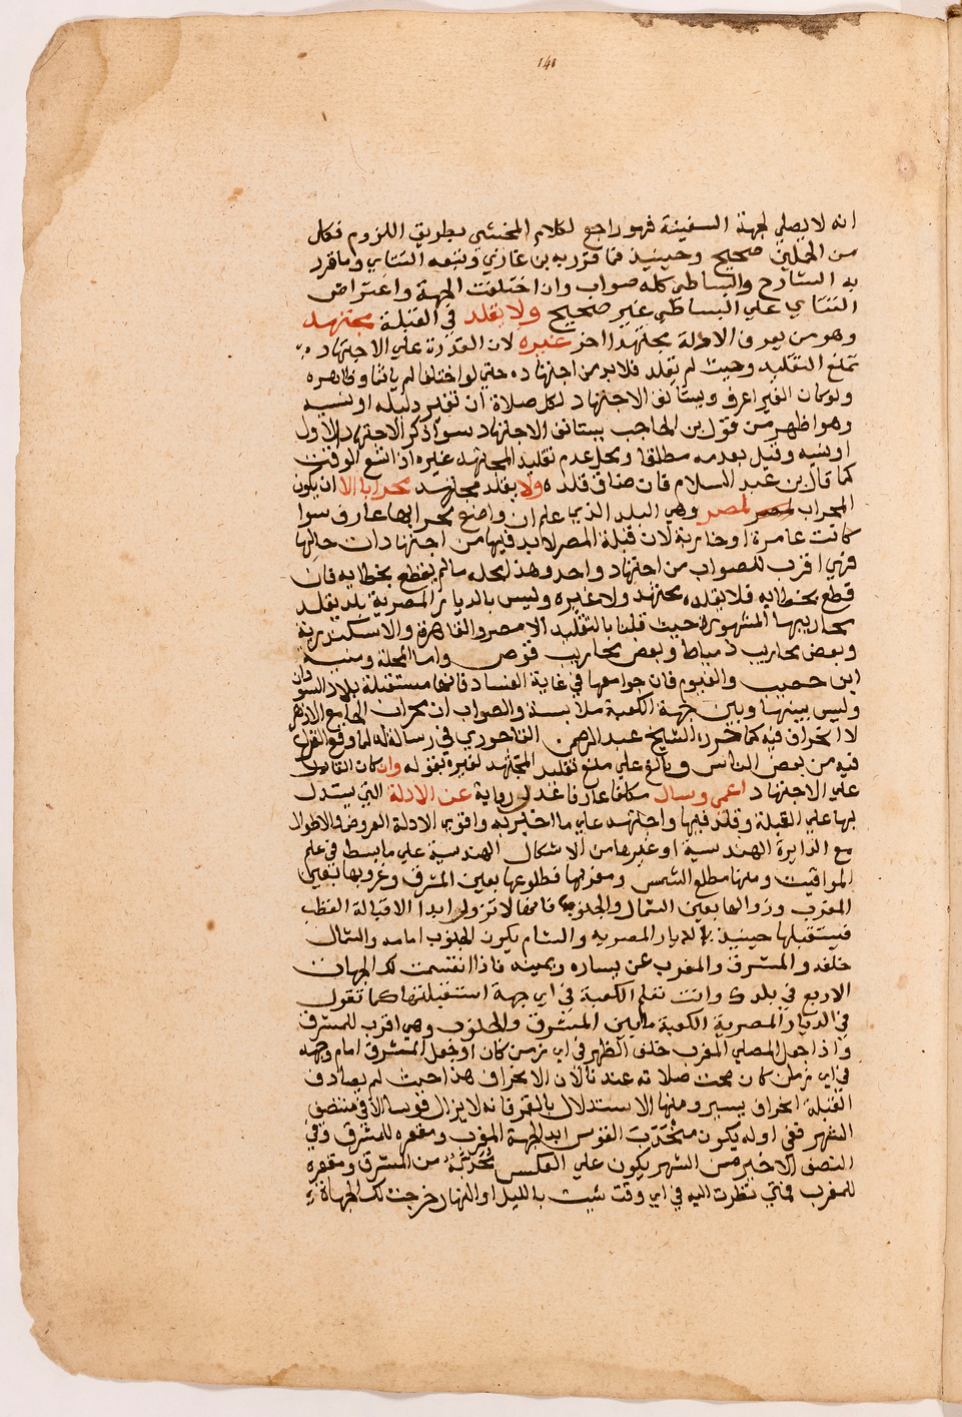 141
انه لا يصلي لجهة السفينة فهو راجع لكلام المحشي بطريق اللزوم فكل
من الحملين صحيح وحينيذ فما قرر به بن غازي وتبعه التتاي وما قرر
به الشارح والبساطي كله صواب وان اختلفت الجهة واعتراض
التتاي علي البساطي غير صحيح ولا يقلد في القبلة مجتهد
وهو من يعرف الادلة مجتهدا اخر غيره لان القدرة علي الاجتهاد
تمنع التقليد وحيث لم يقلد فلابد من اجتهاده حتي لو اختلفا لم ياتما وظاهره
ولو كان الغير اعرف ويستانف الاجتهاد لكل صلاة ان تغير دليله او نسيه
وهو اظهر من قول بن الحاجب يستانف الاجتهاد سوا ذكر الاجتهاد الاول
او نسيه وقيل بعدمه مطلقا ومحل عدم تقليد المجتهد غيره اذا اتسع الوقت
كما قال بن عبد السلام فان ضاق قلده ولا يقلد مجتهد محرابا الا ان يكون
المحراب لمصر لمصر وهي البلد الذي علم ان واضع محرابها عارف سوا
كانت عامرة او خاربة لان قبلة المصر لابد فيها من اجتهادات حالها
فهي اقرب للصواب من اجتهاد واحد وهذا محله ما لم يقطع بخطايه فان
قطع بخطايه فلا يقلده مجتهد ولا غيره وليس بالديار المصرية بلد يقلد
محاريبها المشهورة حيث قلنا بالتقليد الا مصر والقاهرة والاسكندرية
وبعض محاريب دمياط وبعض محاريب قوص واما المحلة ومنية
ابن خصيب والفيوم فان جوامعها في غاية الفساد فانها مستقبلة بلاد السودان
وليس بينها وبين جهة الكعبة ملابسة والصواب ان محراب الجامع الازهر
لا انحراف فيه كما حرره الشيخ عبد الرحمن التاجوري في رسالة له لما وقع القول
فيه من بعض الناس وبالغ علي منع تقليد المجتهد لغيره بقوله وان كان القادر
علي الاجتهاد اعمي وسال مكلفا عارفا عدل رواية عن الادلة التي يستدل
بها علي القبلة وقلد فيها واجتهد علي ما اخبر به واقوي الادلة العروض والاطوال
مع الدايرة الهندسية او غيرها من الاشكال الهندسية علي ما بسط في علم
المواقيت ومنها مطلع الشمس ومغربها فطلوعها بعين المشرق وغروبها بعين
المغرب وزوالها بعين الشمال والجنوب فانها لا تزول ابدا الا قبالة القطب
فيستقبلها حينيذ بالديار المصريه والشام يكون الجنوب امامه والشمال
خلفه والمشرق والمغرب عن يساره ويمينه فاذا انقسمت لك الجهات
الاربع في بلدك وانت تعلم الكعبة في اي جهة استقبلتها كما تقول
في الديار المصرية الكعبة ما بين المشرق والجنوب وهي اقرب للمشرق
واذا جعل المصلي المغرب خلف الظهر في اي زمن كان او جعل المشرق امام وجهه
في اي زمان كان صحت صلاته عندنا لان الانحراف هذا حيث لم يصادف
القبلة انحراف يسير ومنها الاستدلال بالقمر فانه لا يزال قوسا الا في منتصف
الشهر ففي اوله يكون محدب القوس ابدا لجهة المغرب ومقعره للمشرق وفي
النصف الاخير من الشهر يكون علي العكس محدبه من المشرق ومقعره
للمغرب فمتي نظرت اليه في اي وقت شيت بالليل او النهار خرجت لك الجهاة